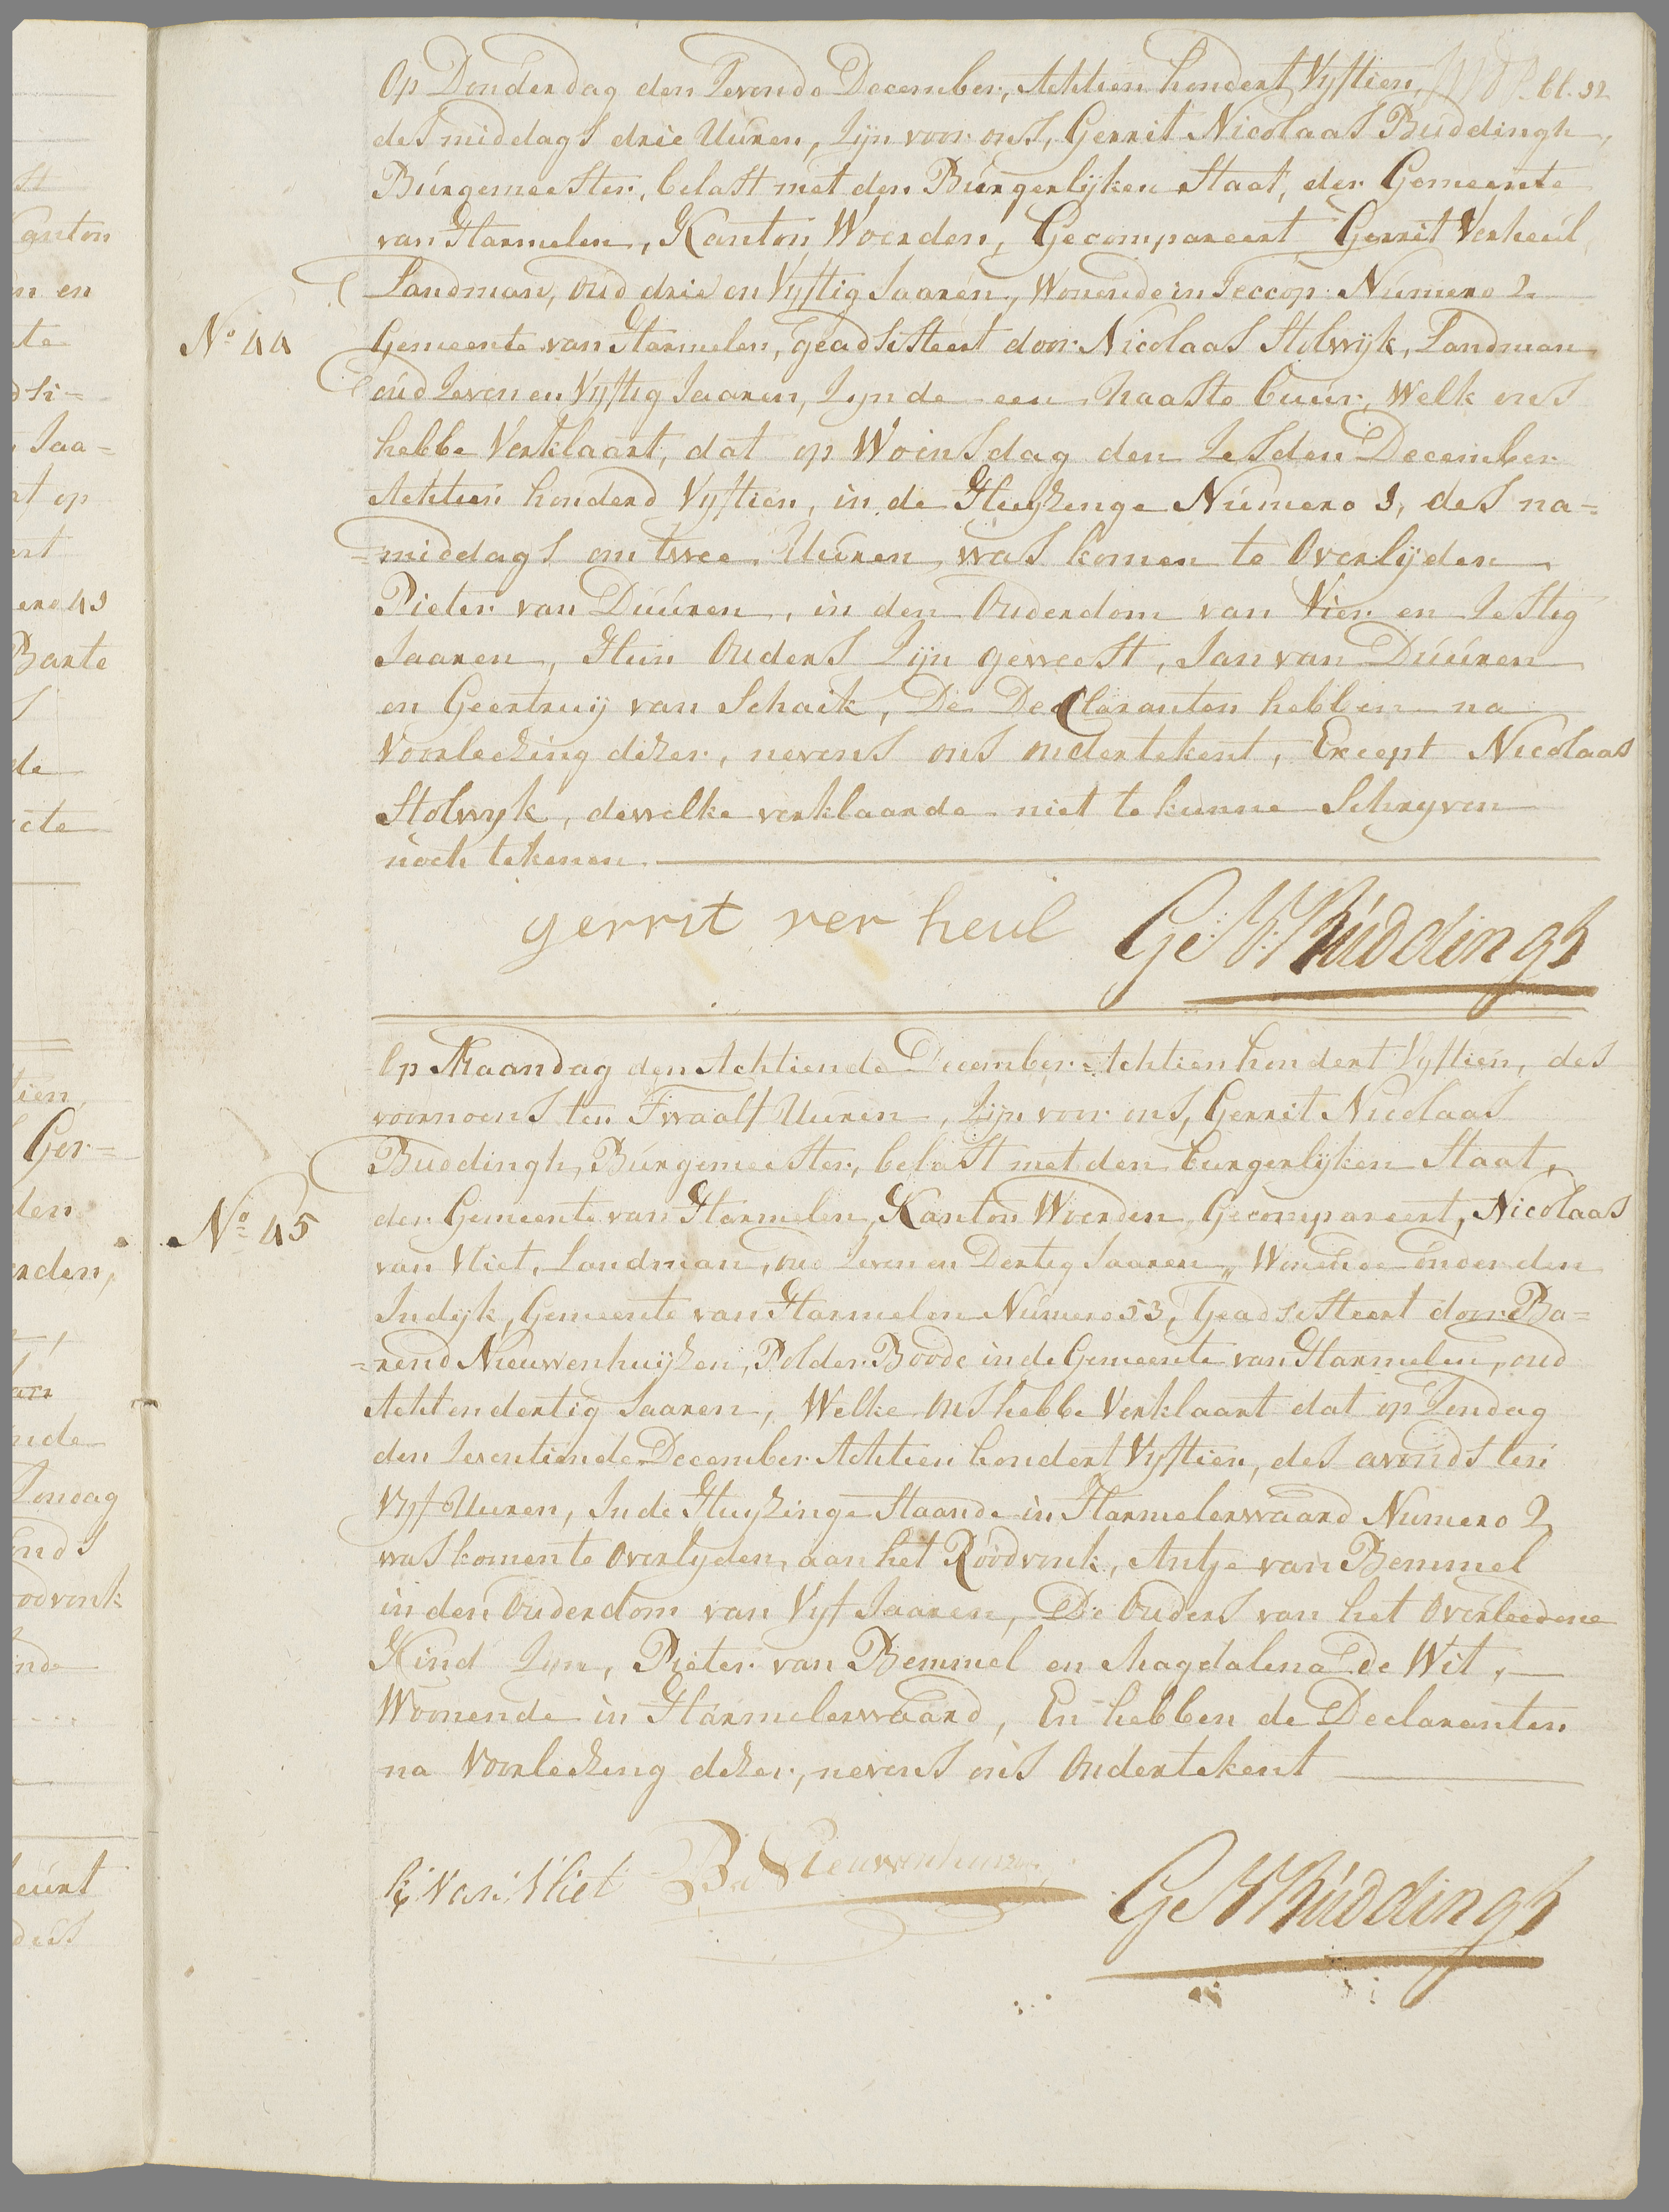 Op Donderdag den Zevende December, Achtien hondert Vyftien, bl. 32
des middags drie Uuren, Zijn voor ons, Gerrit Nicolaas Buddingh,
Burgemeester, belast met den Burgerlijken Staat, der Gemeente
van Harmelen, Kanton Woerden, Gecompareert Gerrit Verheul
Landman, oud drie en Vyftig Jaaren, Wonende in Teccop Numero 2
No 44
Gemeente van Harmelen, geadsisteert door Nicolaas Stolwijk, Landman
oud Zeven en Vyftig Jaaren, Zynde een Naaste buur, Welk ons
hebbe Verklaart, dat op Woensdag den Zesden December
Achtien honderd Vyftien, in de Huyzinge Numero 3, des na=
=middags om twee Uuren, was komen te Overlijden
Pieter van Duuren, in den Ouderdom van Vier en Zestig
Jaaren, Hun Ouders Zijn geweest, Jan van Duuren
en Geertruij van Schaik, De Declaranten hebben na
Voorleezing dezer, nevens ons ondertekent, Except Nicolaas
Stolwyk, dewelke verklaarde niet te kunne Schryven
noch tekenen
gerrit ver heul Ge: N: Buddingh
Op Maandag den Achtiende December Achtien hondert Vyftien, des
voornoens ten Twaalf Uuren, Zijn voor ons, Gerrit Nicolaas
Buddingh, Burgemeester, belast met den burgerlijken Staat,
No 45
der Gemeente van Harmelen, Kanton Woerden, Gecompareert, Nicolaas
van Vliet, Landman, oud Zeven en Dertig Jaaren, Wonende onder den
Indijk, Gemeente van Harmelen Numero 53, Geadsisteert door Ba=
=rend Nieuwenhuijzen, Polder Boode in de Gemeente van Harmelen, oud
Acht en dertig Jaaren, Welke ons hebbe Verklaart dat op Zondag
den Zeventiende December Achtien hondert Vyftien, des avonds ten
Vyf Uuren, In de Huyzinge Staande in Harmelerwaard Numero 2
was komen te Overlyden, aan het Roodvonk, Antje van Bemmel
in den Ouderdom van Vyf Jaaren, De Ouders van het Overleedene
Kind Zyn, Pieter van Bemmel en Magdalena De Wit,
Woonende in Harmelerwaard, En hebben de Declaranten
na Voorleezing dezer, nevens ons Ondertekent
van Vliet B. Nieuwenhuizen Ge N Buddingh